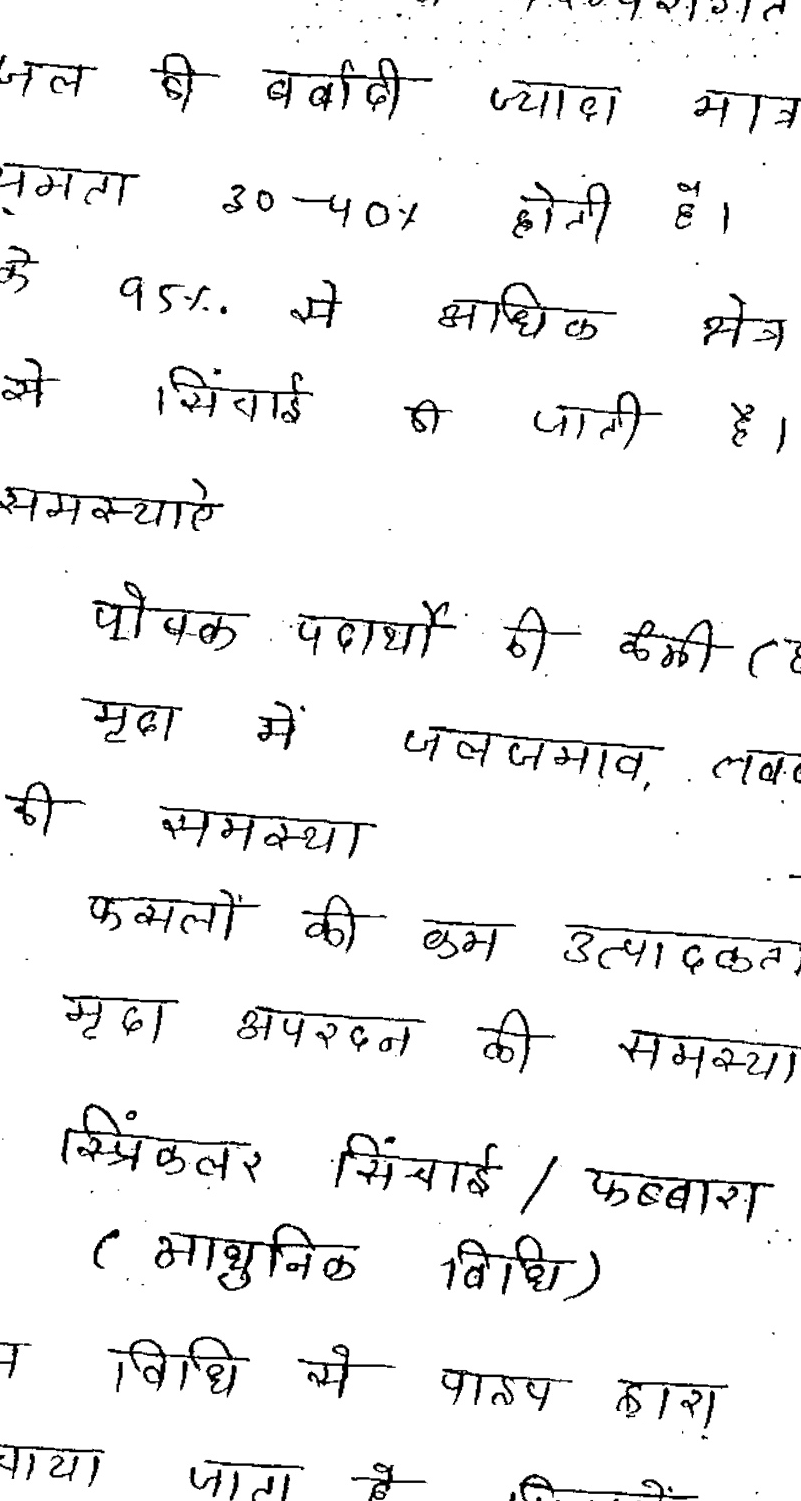 जल की बर्बादी ज्यादा मात्र
क्षमता 30-40% होती है।
के 95%. से अधिक क्षेत्र
से सिंचाई की जाती है।
समस्याऐ
पोषक पदार्थों की कमी (
मृदा में जलजमाव,
की समस्या
फसलों की कम उत्पादकता
मृदा अपरदन की समस्या
स्प्रिंकलर सिंचाई / फब्बारा
(आधुनिक विधि)
विधि से पाइप द्वारा
जाता है